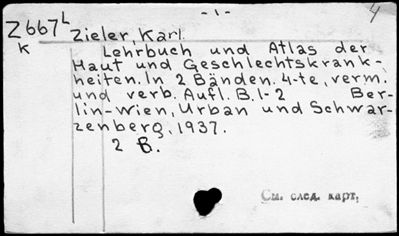 - 1 -
4
Z667L
K
Zieler, Karl.
Lehrbuch und Atlas der
Haut und Geschlechtskrank-
heiten. In 2 Bänden. 4-te, verm.
und verb. Aufl. B. 1-2 Ber-
lin-Wien, Urban und Schwar-
zenberg, 1937.
2 B.
См. след. карт.